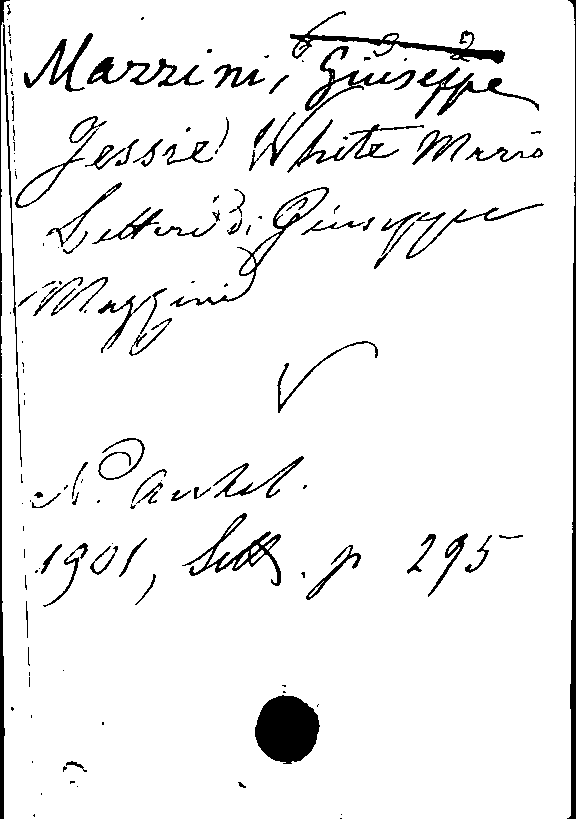 Mazzini, Giuseppe
Jessie White Mario
Lettere di Giuseppe
Mazzini
N. Antol.
1901, Sett. p 295